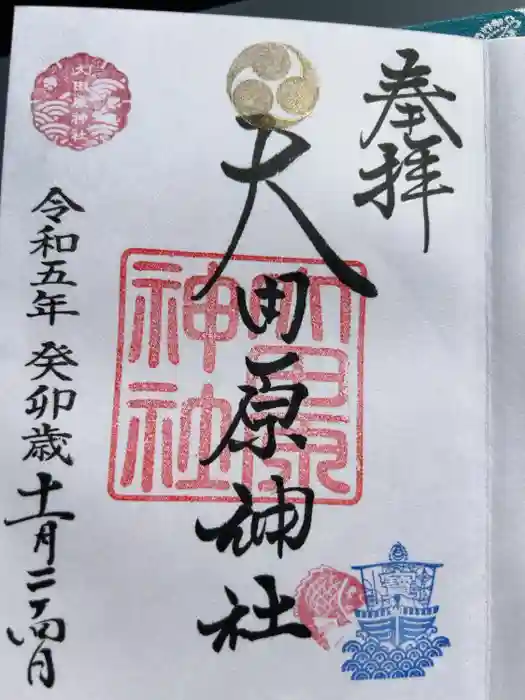 奉拝
大田原神社
大田原
神社
令和五年 癸卯歳 十一月二十四日
大田
原神社